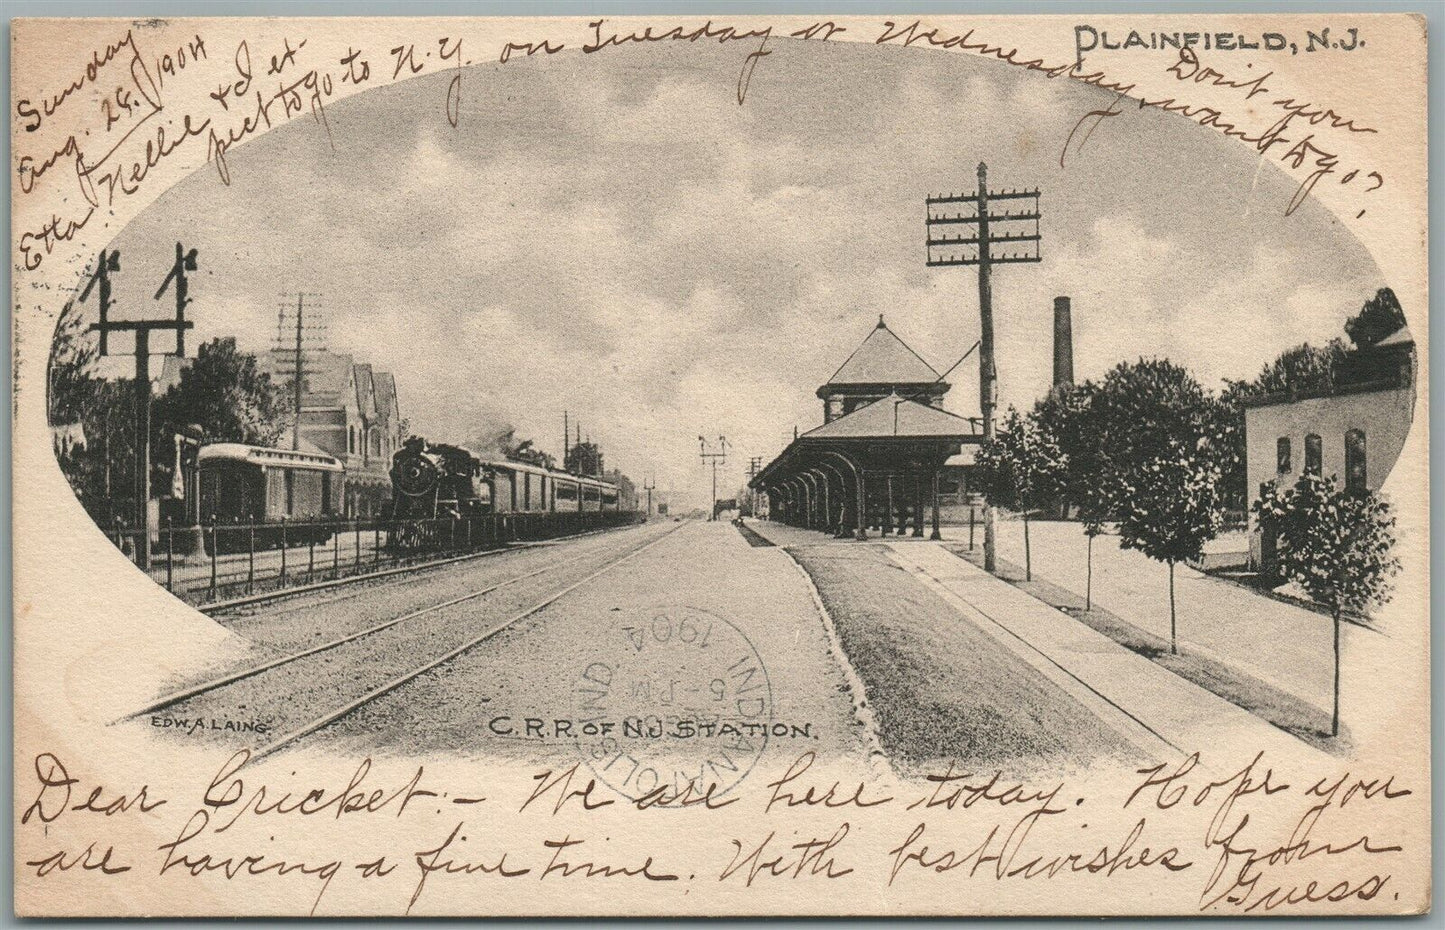 PLAINFIELD, N.J.
Sunday
Aug. 28. 1904
Etta, Nellie & I ex-
pect to go to N.Y. on Tuesday or Wednesday. Don't you
want to go?
EDW. A. LAING.
C.R.R. OF N.J. STATION.
INDIANAPOLIS, IND.
5-PM
1904
Dear Cricket:- We are here today. Hope you
are having a fine time. With best wishes from
Guess.